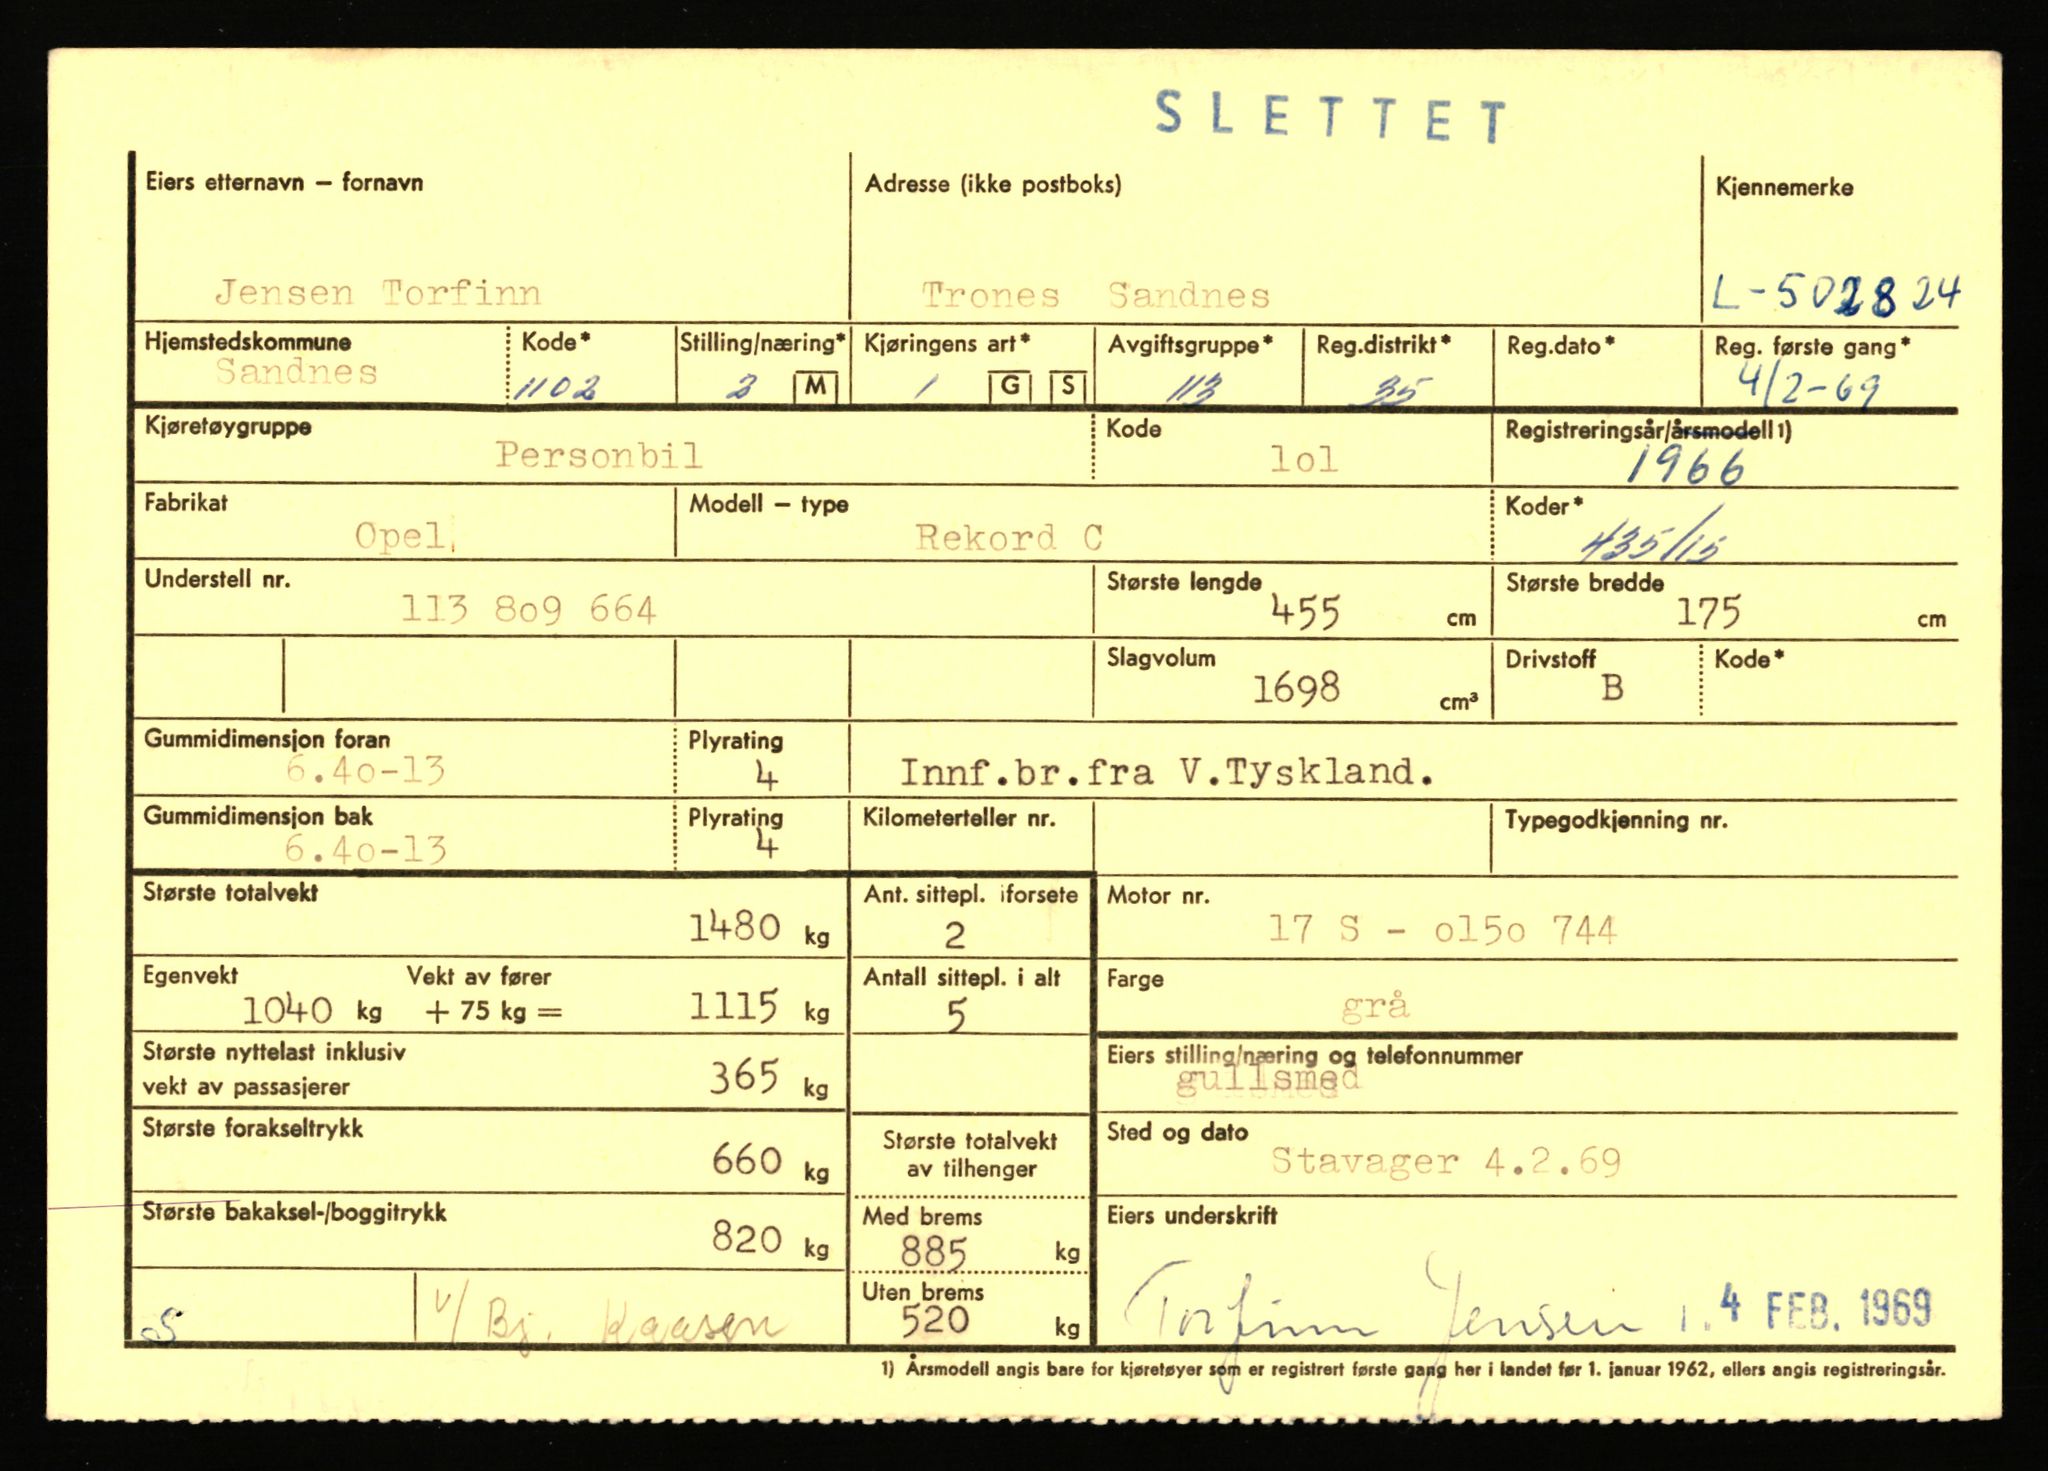 SLETTET
Eiers etternavn – fornavn
Adresse (ikke postboks)
Kjennemerke
Jensen Torfinn
Trones Sandnes
L-502824
Hjemstedskommune
Kode*
Stilling/næring*
Kjøringens art*
Avgiftsgruppe*
Reg.distrikt*
Reg.dato*
Reg. første gang*
Sandnes
1102
2 M
1 G S
113
35
4/2-69
Kjøretøygruppe
Personbil
Kode
lol
Registreringsår/årsmodell 1)
1966
Fabrikat
Opel
Modell – type
Rekord C
Koder*
435/15
Understell nr.
113 8o9 664
Største lengde
455 cm
Største bredde
175 cm
Slagvolum
1698 cm³
Drivstoff
B
Kode*
Gummidimensjon foran
6.4o-13
Plyrating
4
Innf.br.fra V.Tyskland.
Gummidimensjon bak
6.4o-13
Plyrating
4
Kilometerteller nr.
Typegodkjenning nr.
Største totalvekt
1480 kg
Ant. sittepl. iforsete
2
Motor nr.
17 S - o15o 744
Egenvekt
1040 kg
Vekt av fører
+ 75 kg =
1115 kg
Antall sittepl. i alt
5
Farge
grå
Største nyttelast inklusiv
vekt av passasjerer
365 kg
Eiers stilling/næring og telefonnummer
gullsmed
Største forakseltrykk
660 kg
Største totalvekt
av tilhenger
Sted og dato
Stavager 4.2.69
Største bakaksel-/boggitrykk
820 kg
Med brems
885 kg
Eiers underskrift
Uten brems
520 kg
S
v/ Bj. Kaasen
Torfinn Jensen
4 FEB. 1969
1) Årsmodell angis bare for kjøretøyer som er registrert første gang her i landet før 1. januar 1962, ellers angis registreringsår.